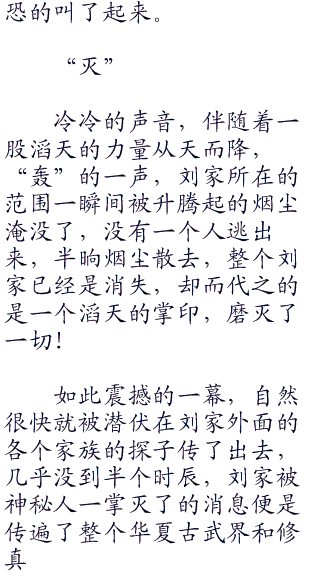 恐的叫了起来。
“灭”
冷冷的声音，伴随着一
股滔天的力量从天而降，
“轰”的一声，刘家所在的
范围一瞬间被升腾起的烟尘
淹没了，没有一个人逃出
来，半晌烟尘散去，整个刘
家已经是消失，却而代之的
是一个滔天的掌印，磨灭了
一切！
如此震撼的一幕，自然
很快就被潜伏在刘家外面的
各个家族的探子传了出去，
几乎没到半个时辰，刘家被
神秘人一掌灭了的消息便是
传遍了整个华夏古武界和修
真